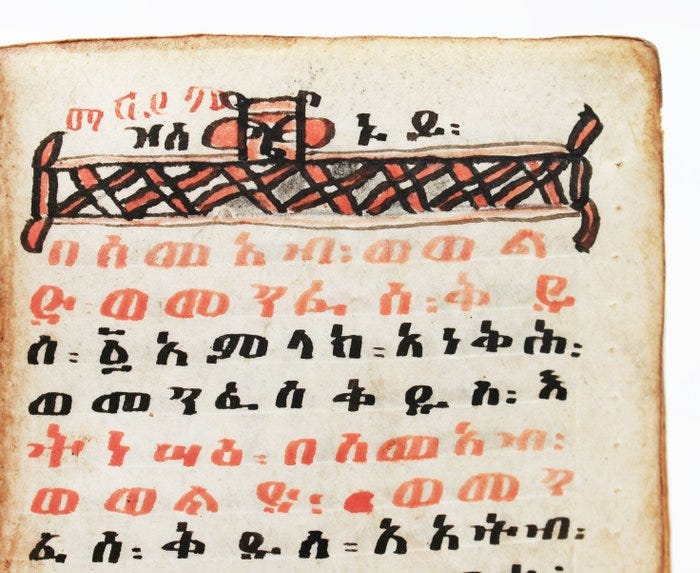 በስመ አብ፡ ወወል
ድ፡ ወመንፈስ፡ ቅዱ
ስ፡ ፩ አምላክ። አነቅሕ፡
ወመንፈስ ቅዱስ፡ እ
ትነሣዕ። በስመ አብ፡
ወወልድ፡ ወመን
ፈስ፡ ቅዱስ። አአትብ፡